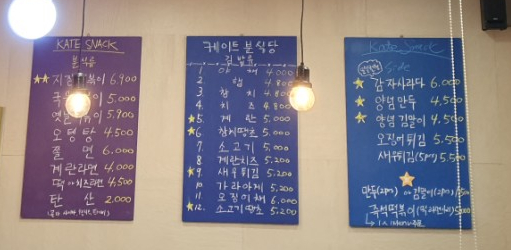 KATE SNACK
분식류
지 볶이 6.900
국 이 5.000
옛 볶이 5.900
오뎅탕 4.500
쫄면 6.000
계란라면 4.000
떡 라면 4.500
탄산 2.000
케이트분식당
김밥류
1 야채 4.000
2 햄 4.800
3 참치 4.800
4 치즈 4.800
5 계란 5.000
6 참치땡초 5.200
7 소고기 5.000
8 계란치즈 5.200
9 새우튀김 5.200
10 가라아게 5.200
11 오징어채 6.000
12. 소고기땡초 5.200
Kate Snack
Side
감자사라다 6.000
양념만두 4.500
양념김말이 4.500
오징어튀김 5.500
새우튀김(5개) 5.500
만두(2개) 김말이(2개)
즉석떡볶이